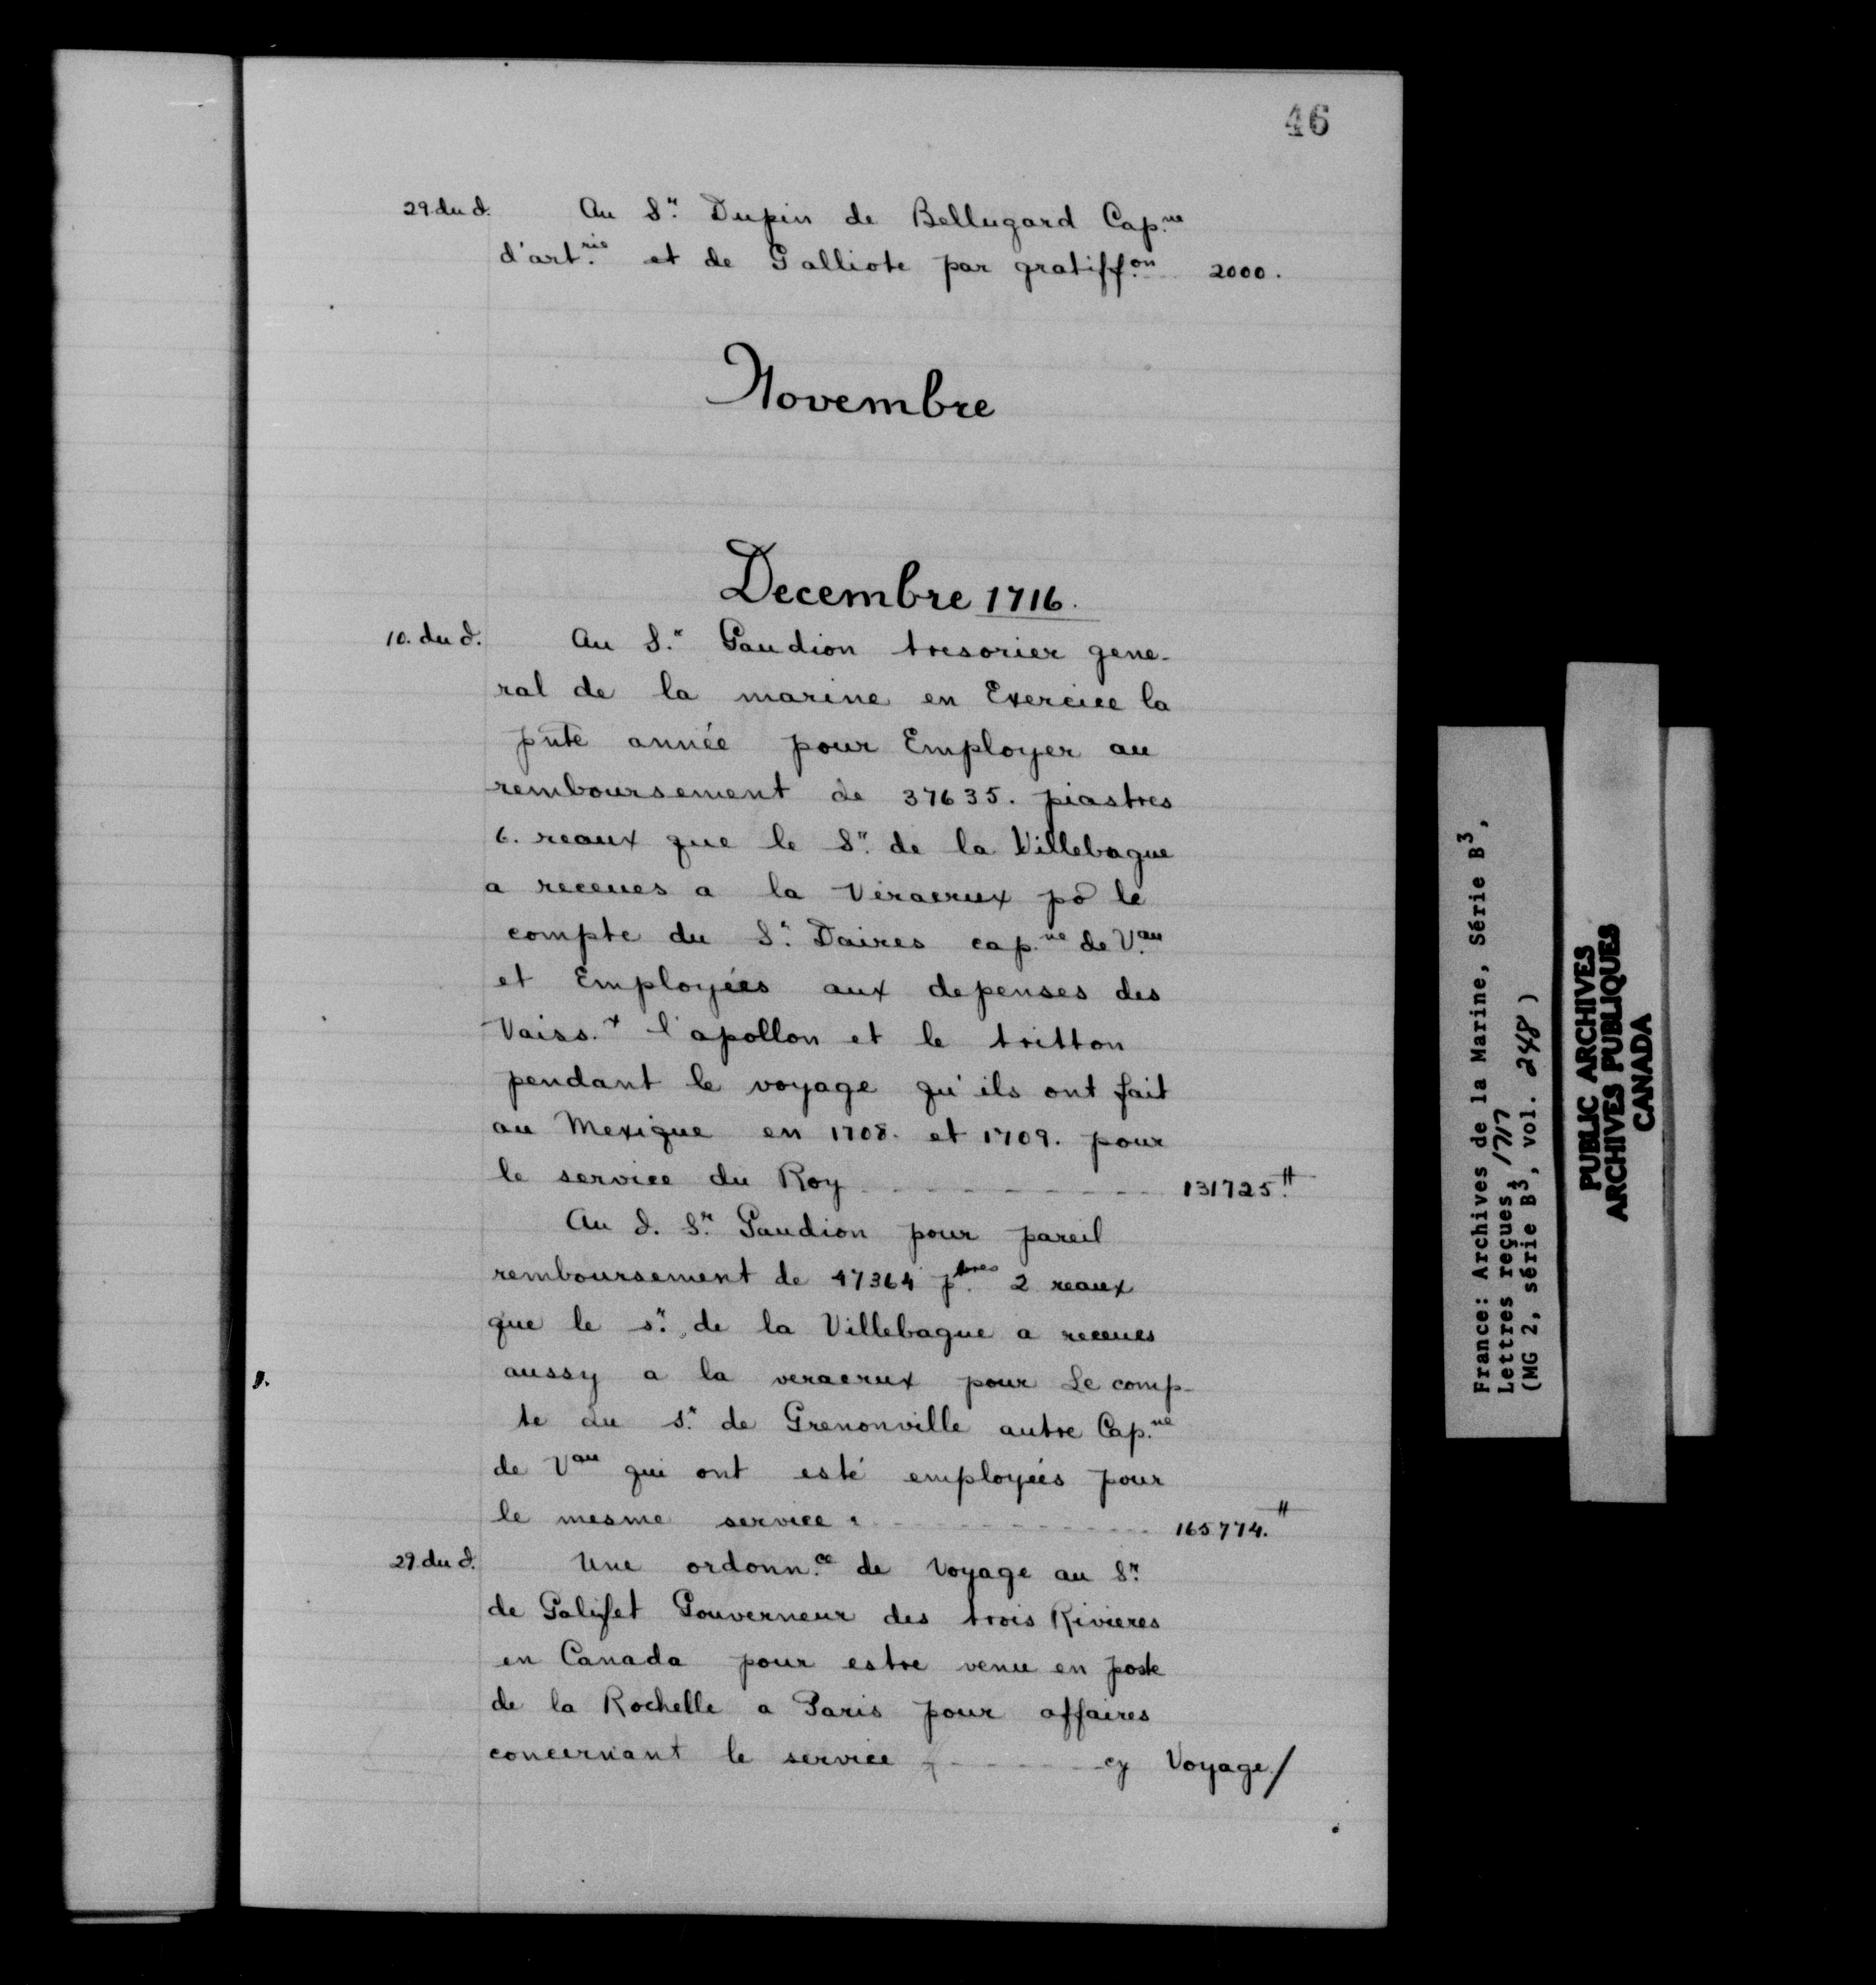 46
29. du d. Au S.r Dupin de Bellugard Cap.ne
d'art.rie et de Galliote par gratiff.on 2000.
Novembre
Decembre 1716.
10. du d. Au S.r Gaudion tresorier gene-
ral de la marine en Exercice la
pñte année pour Employer au
remboursement de 37635. piastres
6. reaux que le S.r de la Villebague
a receues a la Veracrux po le
compte du S.r Daires cap.ne de V.au
et Employées aux depenses des
Vaiss.x l'apollon et le tritton
pendant le voyage qu'ils ont fait
au Mexique en 1708. et 1709. pour
le service du Roy 131725.#
Au d. S.r Gaudion pour pareil
remboursement de 47364 p.tres 2 reaux
que le s.r de la Villebague a receues
aussy a la veracrux pour Le comp-
te du s.r de Grenonville autre Cap.ne
de Vau qui ont esté employées pour
le mesme service. 165774.#
29. du d. Une ordonn.ce de Voyage au S.r
de Galifet Gouverneur des trois Rivieres
en Canada pour estre venu en poste
de la Rochelle a Paris pour affaires
concernant le service cy Voyage/
France: Archives de la Marine, Série B3,
Lettres reçues, 1717
(MG 2, série B3, vol. 248)
PUBLIC ARCHIVES
ARCHIVES PUBLIQUES
CANADA